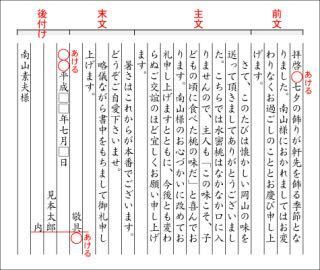 前文
主文
末文
後付け
拝啓○七夕の飾りが軒先を飾る季節とな
あける
りました。南山様におかれましてはお変
わりなくお過ごしのこととお慶び申し上
げます。
さて、このたびは懐かしい岡山の味を
送って頂きましてありがとうございまし
た。こちらでは水蜜桃はなかなか口に入
りませんので、主人も「この味こそ、子
どもの頃に食べた桃の味だ」と喜んでお
ります。南山様のお心づかいに改めてお
礼申し上げますとともに、今後とも変わ
らぬご交誼のほど宜しくお願い申し上げ
ます。
暑さはこれからが本番でございます。
どうぞご自愛下さいませ。
略儀ながら書中をもちまして御礼申し
上げます。
敬具○
あける
あける
○○平成□□年七月□日
見本太郎
内○
あける
南山素夫様